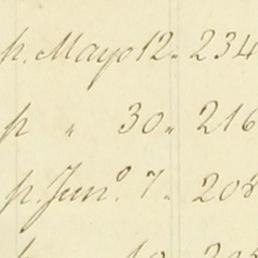 p. Mayo 12„ 234
p „ 30„ 216
p. Junº. 7„ 208